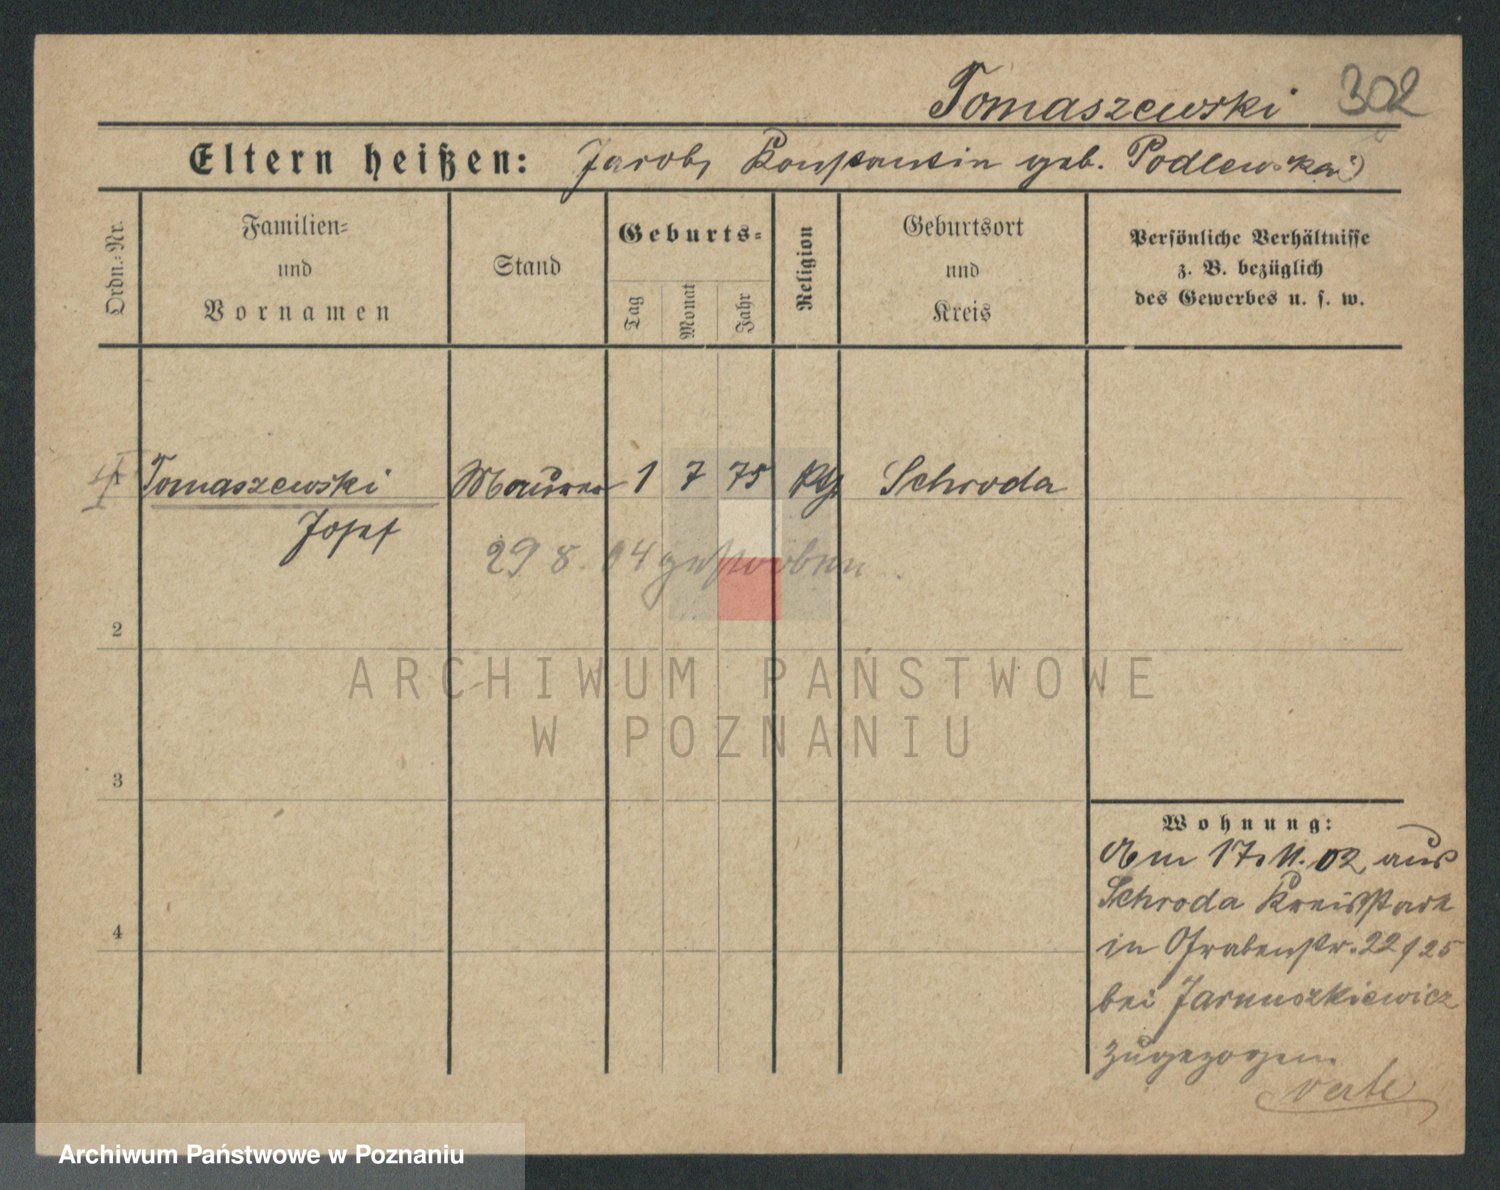 Tomaszewski 302
Eltern heißen: Jacob, Konstantin geb. Podlewska
Ordn.-Nr.
Familien-
und
Vornamen
Stand
Geburts-
Tag
Monat
Jahr
Religion
Geburtsort
und
Kreis
Persönliche Verhältnisse
z. B. bezüglich
des Gewerbes u. s. w.
Tomaszewski Maurer 1 7 75 Kth Schroda
Josef
29 8. 04 gestorben
2
3
4
Wohnung:
Am 17. 11. 02 aus
Schroda Kreisstadt
in Grabenstr. 22/25
bei Januszkiewicz
zugezogen.
ARCHIWUM PAŃSTWOWE
W POZNANIU
Archiwum Państwowe w Poznaniu